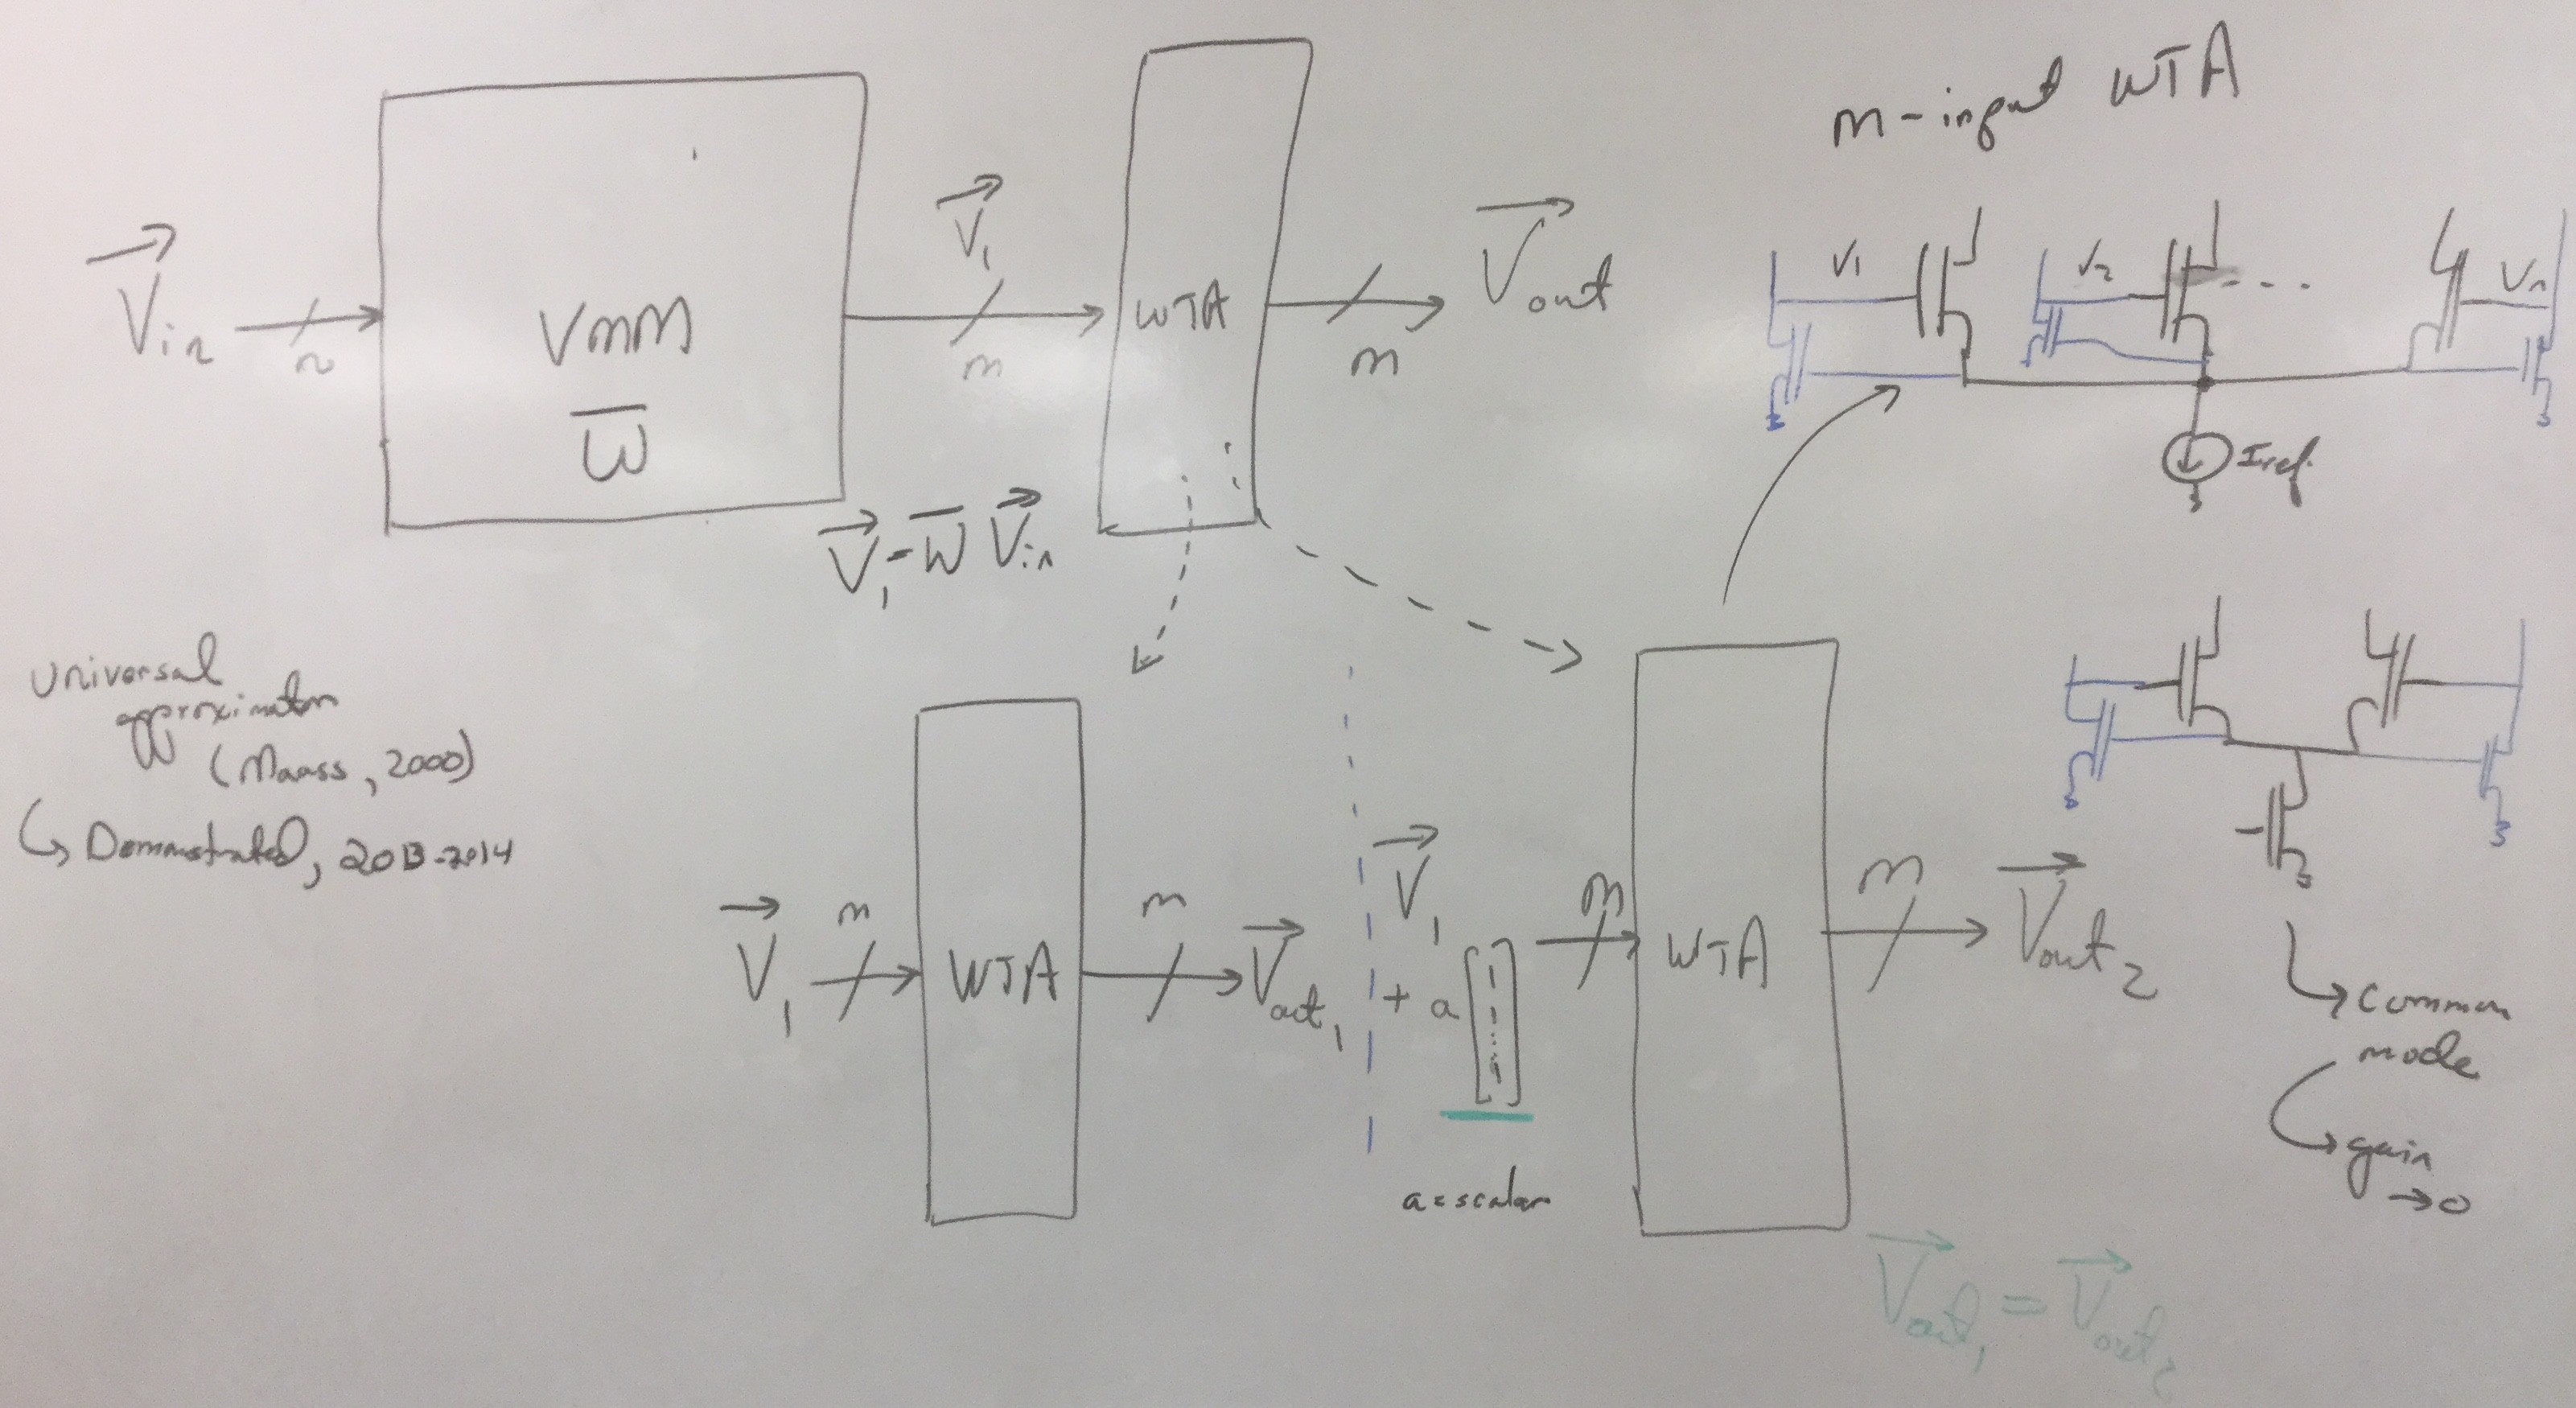 m-input WTA
Vin
n
VMM
W
V1
m
WTA
m
Vout
V1 = W Vin
V1
V2
...
Vn
Iref.
Universal
approximator
(Maass, 2000)
↳ Demonstrated, 2013-2014
V1
m
WTA
m
Vout1
V1
+ a
a = scalar
m
WTA
m
Vout2
↳ common
mode
↳ gain
→ 0
Vout1 = Vout2